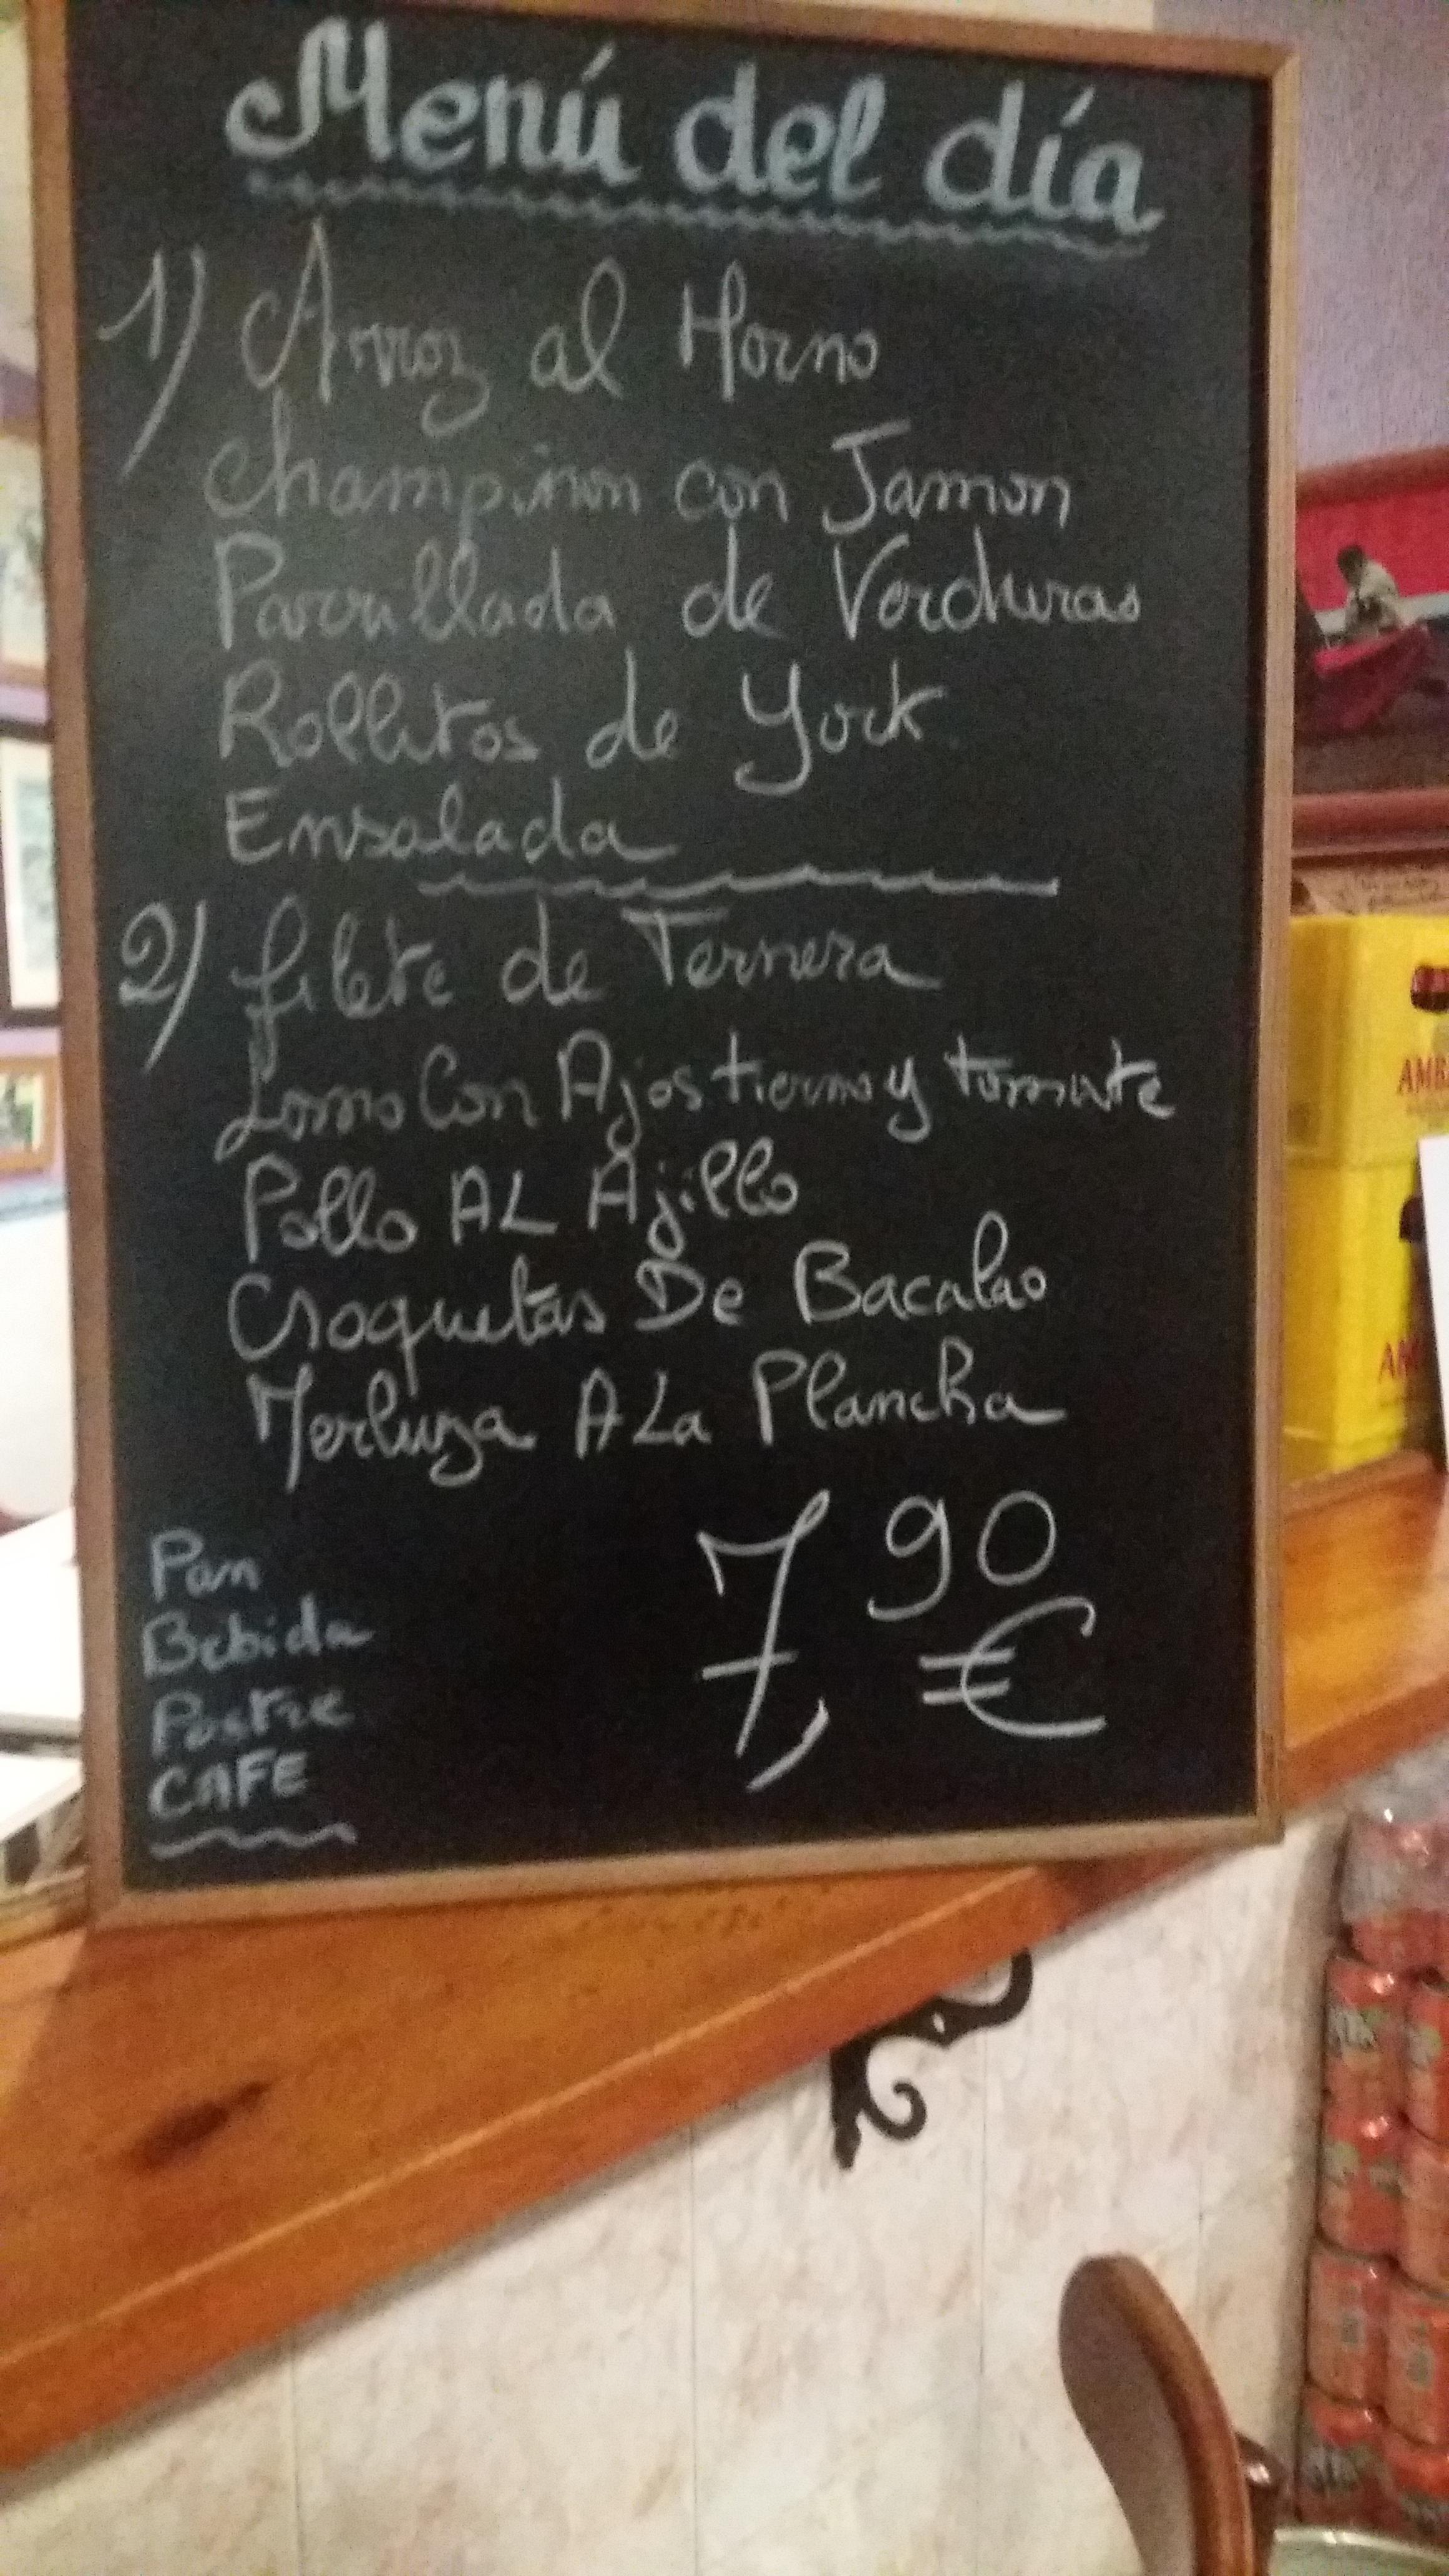 Menú del día
1) Arroz al Horno
Champiñon con Jamon
Parrillada de Verduras
Rollitos de York
Ensalada
2) filete de Ternera
Lomo Con Ajos tierno y tomate
Pollo AL Ajillo
Croquetas De Bacalao
Merluza A La Plancha
Pan
Bebida
Postre
CAFE
7,90 €